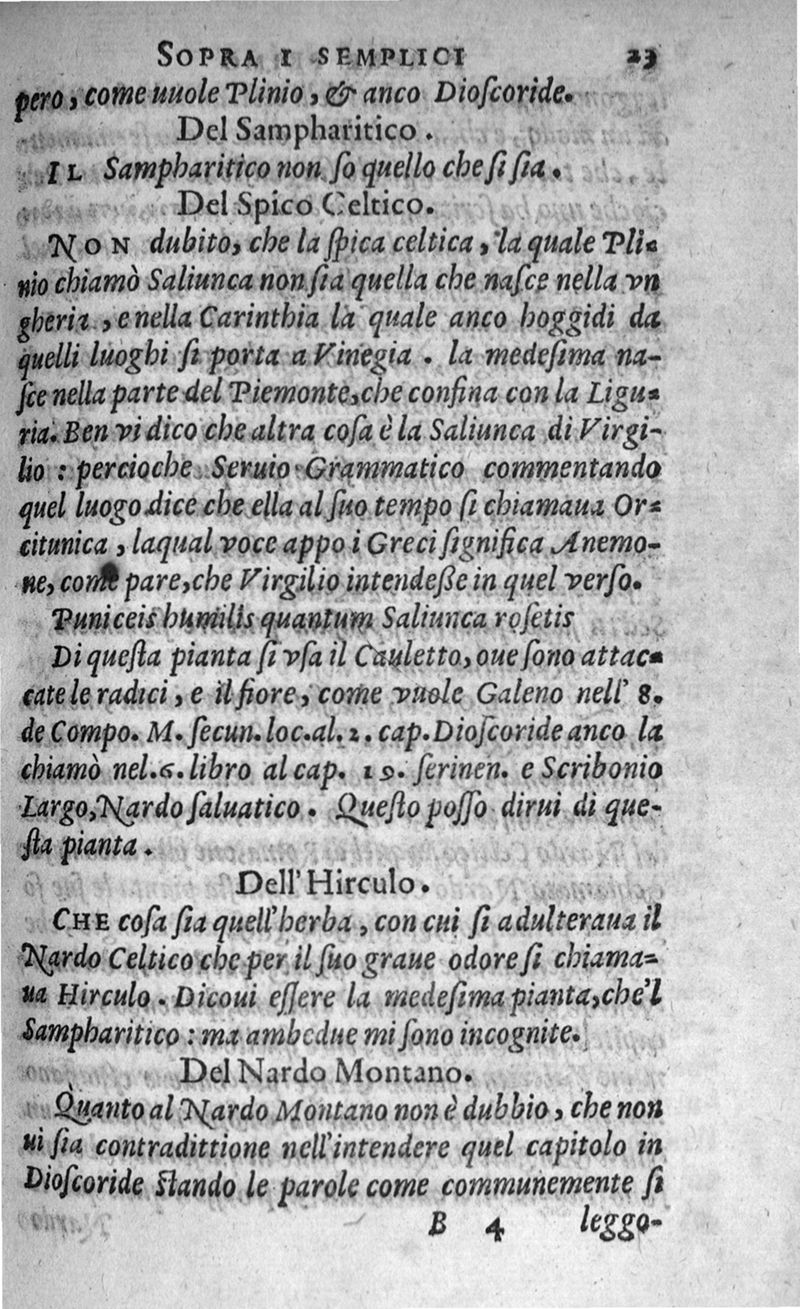 SOPRA I SEMPLICI 23
pero, come uuole Plinio, & anco Dioſcoride.
Del Sampharitico.
IL Sampharitico non ſo quello che ſi ſia.
Del Spico Celtico.
NON dubito, che la ſpica celtica, la quale Pli-
nio chiamò Saliunca non ſia quella che naſce nella vn
gheria, e nella Carinthia la quale anco hoggidi da
quelli luoghi ſi porta a Vinegia. la medeſima na-
ſce nella parte del Piemonte, che confina con la Ligu-
ria. Ben vi dico che altra coſa è la Saliunca di Virgi-
lio: percioche Seruio Grammatico commentando
quel luogo dice che ella al ſuo tempo ſi chiamaua Or-
citunica, laqual voce appo i Greci ſignifica Anemo-
ne, come pare, che Virgilio intendeſſe in quel verſo.
Puniceis humilis quantum Saliunca roſetis
Di queſta pianta ſi vſa il Cauletto, oue ſono attac-
cate le radici, e il fiore, come vuole Galeno nell' 8.
de Compo. M. ſecun. loc. al. 2. cap. Dioſcoride anco la
chiamò nel. 6. libro al cap. 19. ſerinen. e Scribonio
Largo, Nardo ſaluatico. Queſto poſſo dirui di que-
ſta pianta.
Dell' Hirculo.
CHE coſa ſia quell'herba, con cui ſi adulteraua il
Nardo Celtico che per il ſuo graue odore ſi chiama-
ua Hirculo. Dicoui eſſere la medeſima pianta, che'l
Sampharitico: ma ambedue mi ſono incognite.
Del Nardo Montano.
Quanto al Nardo Montano non è dubbio, che non
ui ſia contradittione nell'intendere quel capitolo in
Dioſcoride ſtando le parole come communemente ſi
B 4 leggo-